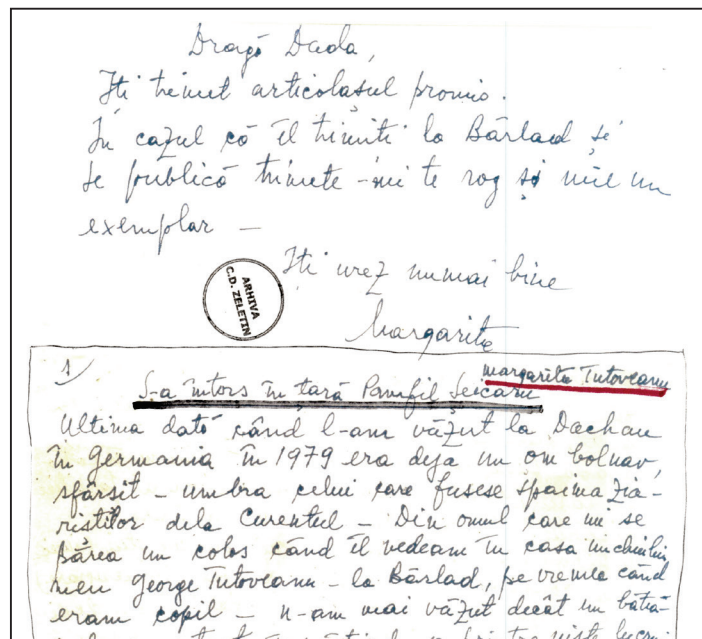 Dragă Duda,
Iti trimit articolașul promis.
In cazul că îl trimiti la Bârlad și
se publică trimete-mi te rog și mie un
exemplar —
Iti urez numai bine
Margarita
ARHIVA
C.D. ZELETIN
1/
Margarita Tutoveanu
S-a întors în țară Pamfil Șeicaru
Ultima dată când l-am văzut la Dachau
în Germania în 1979 era deja un om bolnav,
sfârsit - umbra celui care fusese spaima zia-
ristilor dela Curentul - Din omul care mi se
părea un colos când îl vedeam în casa unchiului
meu George Tutoveanu - la Bârlad, pe vremea când
eram copil - n-am mai văzut decât un bătrâ-